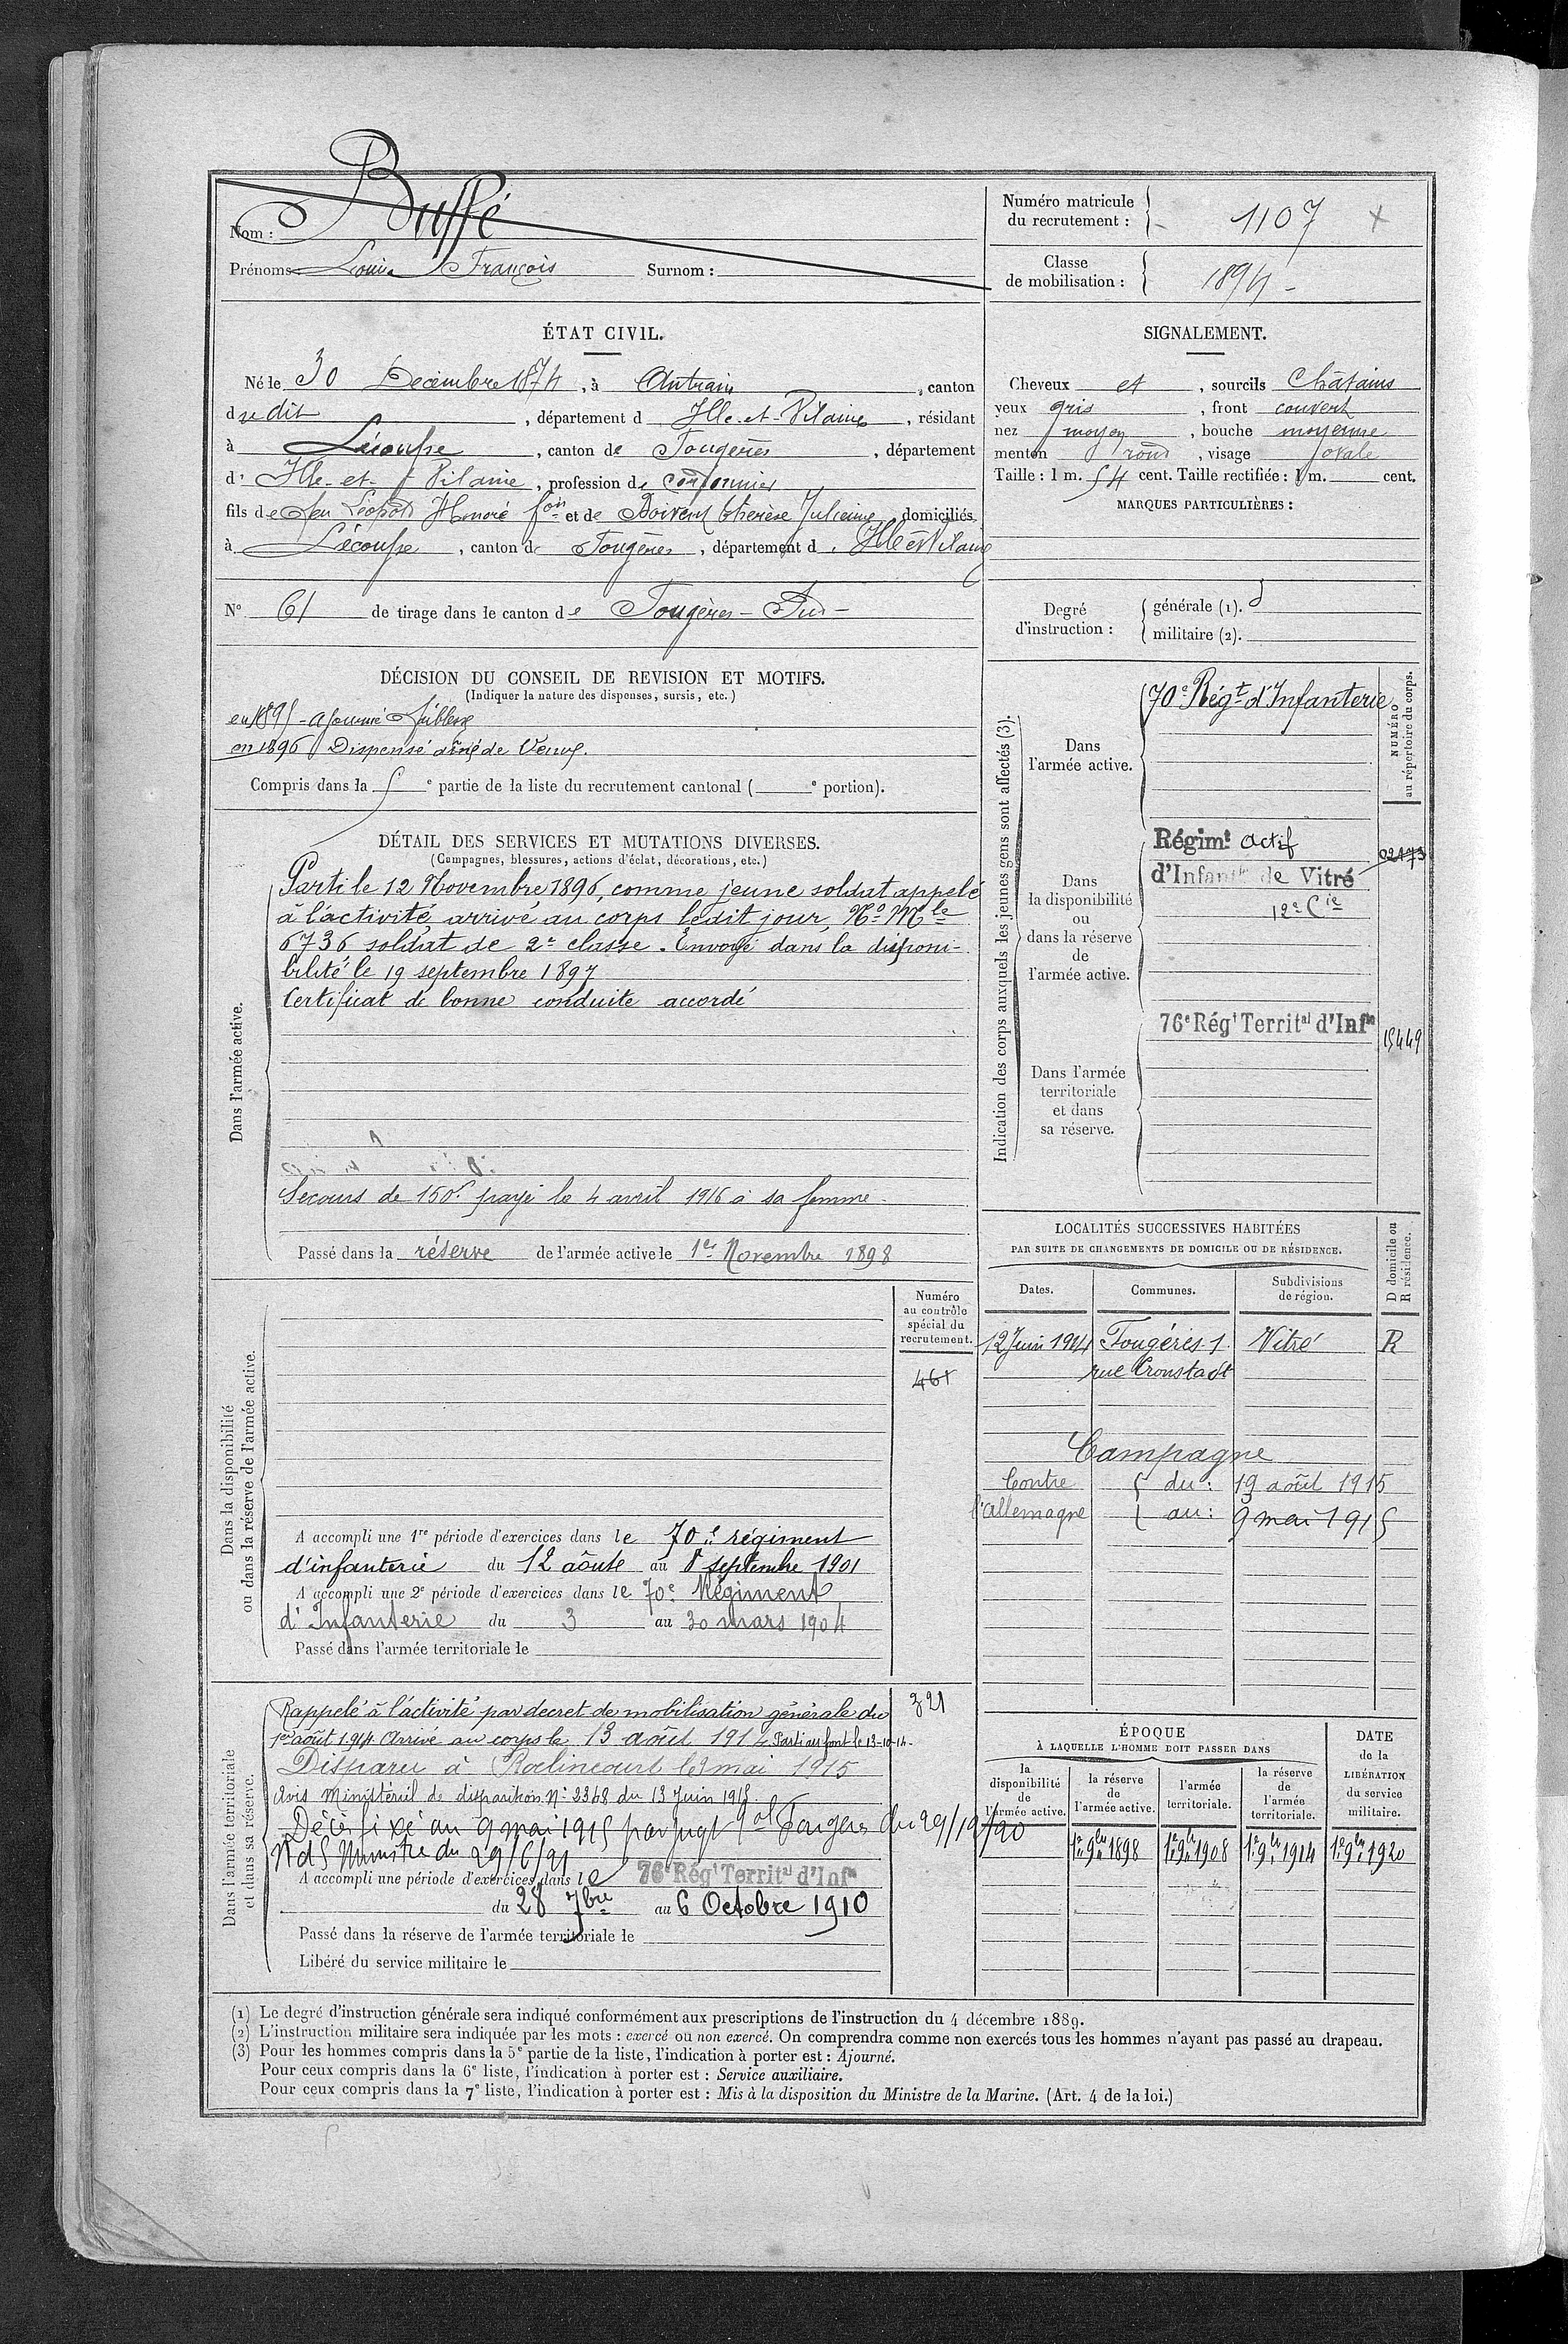 Nom : Buffé
Prénoms : Louis François Surnom :
Numéro matricule du recrutement : 1107 x
Classe de mobilisation : 1894 -
ÉTAT CIVIL.
Né le 30 Décembre 1874, à Antrain, canton
dudit, département d Ille-et-Vilaine, résidant
à Lécousse, canton de Fougères, département
d' Ille-et-Vilaine, profession de cordonnier
fils de feu Léopold Honoré fois et de Doivent Thérèse Julienne, domiciliés
à Lécousse, canton de Fougères, département d. Ille et Vilaine
N° 61 de tirage dans le canton de Fougères - Sud -
SIGNALEMENT.
Cheveux et, sourcils Châtains
yeux gris, front couvert
nez moyen, bouche moyenne
menton rond, visage ovale
Taille : 1 m. 54 cent. Taille rectifiée : 1 m. cent.
MARQUES PARTICULIÈRES :
Degré d'instruction : générale (1). 3
militaire (2).
DÉCISION DU CONSEIL DE REVISION ET MOTIFS.
(Indiquer la nature des dispenses, sursis, etc.)
en 1895 - ajourné faiblesse
en 1896 Dispensé aîné de Veuve.
Compris dans la e partie de la liste du recrutement cantonal ( e portion).
DÉTAIL DES SERVICES ET MUTATIONS DIVERSES.
(Campagnes, blessures, actions d'éclat, décorations, etc.)
Dans l'armée active.
Parti le 12 Novembre 1896, comme jeune soldat appelé
à l'activité, arrivé au corps ledit jour, N° Mle
6736 soldat de 2e classe. Envoyé dans la disponi-
bilité le 19 septembre 1897
Certificat de bonne conduite accordé
Secours de 150f payé le 4 avril 1916 à sa femme.
Passé dans la réserve de l'armée active le 1er Novembre 1898
Indication des corps auxquels les jeunes gens sont affectés (3).
NUMÉRO au répertoire du corps.
Dans l'armée active.
70e Régt d'Infanterie
Dans la disponibilité ou dans la réserve de l'armée active.
Régimt actif
d'Infanie de Vitré
02173
12e Cie
Dans l'armée territoriale et dans sa réserve.
76e Régt Territal d'Infie
15449
LOCALITÉS SUCCESSIVES HABITÉES
PAR SUITE DE CHANGEMENTS DE DOMICILE OU DE RÉSIDENCE.
D domicile ou R résidence.
Dates. Communes. Subdivisions de région.
12 Juin 1914 Fougères 1 Vitré R
rue Cronstadt
Campagne
Contre du : 19 août 1915
l'allemagne au : 9 mai 1915
Dans la disponibilité ou dans la réserve de l'armée active.
Numéro au contrôle spécial du recrutement.
461
A accompli une 1re période d'exercices dans le 70e régiment
d'infanterie du 12 août au 8 septembre 1901
A accompli une 2e période d'exercices dans le 70e Régiment
d'Infanterie du 3 au 30 mars 1904
Passé dans l'armée territoriale le
Dans l'armée territoriale et dans sa réserve.
321
Rappelé à l'activité par decret de mobilisation générale du
1er août 1914 Arrivé au corps le 13 août 1914 Parti au front le 13-10-14.
Disparu à Roclincourt le 9 mai 1915
Avis Ministériel de disparition N° 2368 du 13 Juin 1915.
Décès fixé au 9 mai 1915 par jugt Tal Fougères du 29/12/20
Ministre du 29/6/21
A accompli une période d'exercices dans le 76e Régt Territal d'Infie
du 28 7bre au 6 Octobre 1910
Passé dans la réserve de l'armée territoriale le
Libéré du service militaire le
ÉPOQUE
À LAQUELLE L'HOMME DOIT PASSER DANS
la disponibilité de l'armée active.
la réserve de l'armée active.
l'armée territoriale.
la réserve de l'armée territoriale.
DATE de la LIBÉRATION du service militaire.
1er 9bre 1898 1er 9bre 1908 1er 9bre 1914 1er 9bre 1920
(1) Le degré d'instruction générale sera indiqué conformément aux prescriptions de l'instruction du 4 décembre 1889.
(2) L'instruction militaire sera indiquée par les mots : exercé ou non exercé. On comprendra comme non exercés tous les hommes n'ayant pas passé au drapeau.
(3) Pour les hommes compris dans la 5e partie de la liste, l'indication à porter est : Ajourné.
Pour ceux compris dans la 6e liste, l'indication à porter est : Service auxiliaire.
Pour ceux compris dans la 7e liste, l'indication à porter est : Mis à la disposition du Ministre de la Marine. (Art. 4 de la loi.)